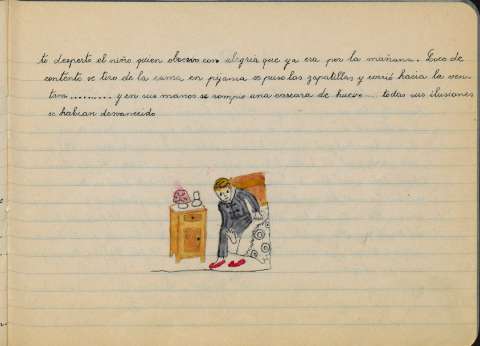 to desperto el niño quien observo con alegria que ya era por la mañana. Loco de
contento se tiro de la cama en pijama se puso las zapatillas y corrió hacia la ven-
tana .......... y en sus manos se rompio una cascara de huevo .... todas sus ilusiones
se habian desvanecido